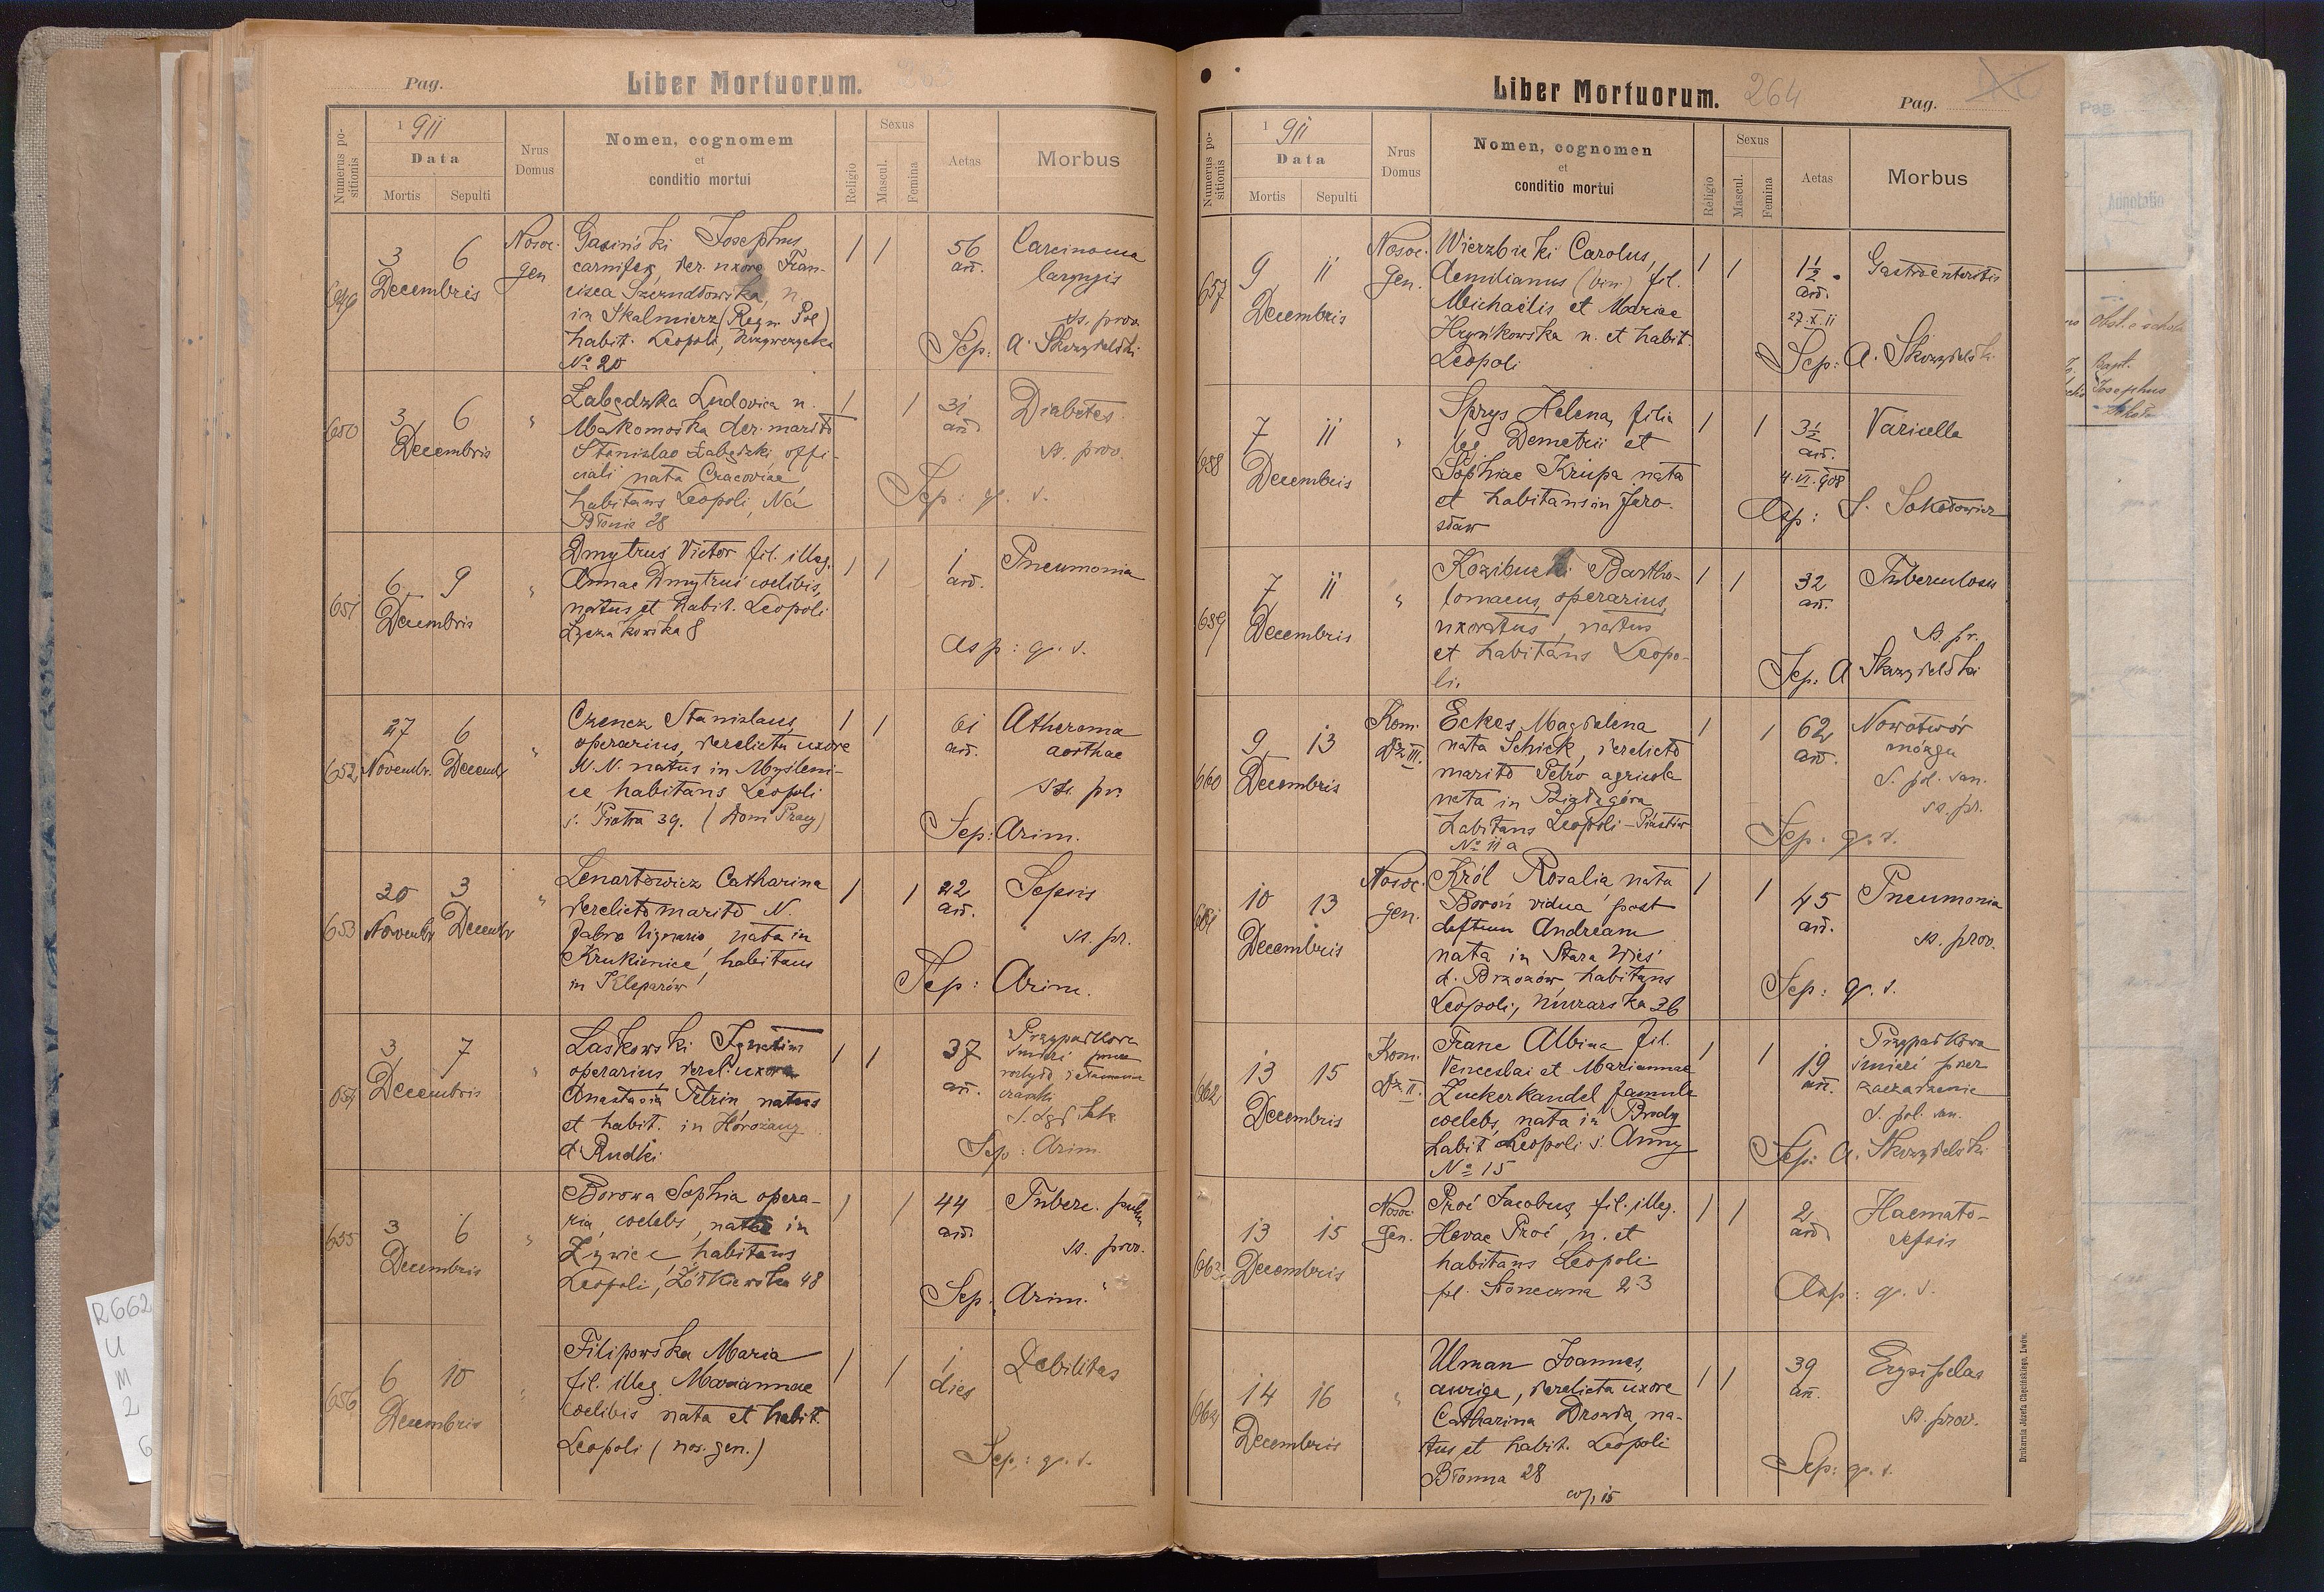 Pag.
Liber Mortuorum.
Numerus positionis
1911
Data
Mortis
Sepulti
Nrus Domus
Nomen, cognomem
et
conditio mortui
Religio
Sexus
Mascul.
Femina
Aetas
Morbus
649
3
6
Decembris
Nosoc.
gen
Josephus,
carnifex, der. uxore Fran-
cisca
in Skalmierz (Regn. Pol)
habit. Leopoli,
№ 20
1
1
56
an.
Carcinoma
laryngis
ss. prov.
Sep: A. Skrzydelski
650
3
6
Decembris
"
Łabędzka Ludovica n.
Makomaska der. marito
Stanislao Łabędzki, offi-
ciali nata Cracoviae,
habitans Leopoli, Na
Błonie 28
1
1
31
an
Diabetes.
ss. prov.
Sep: q. s.
651
6
9
Decembris
"
Dmytruś Victor fil. illeg.
Annae Dmytruś coelibis,
natus et habit. Leopoli
Łyczakowska 8
1
1
1
an.
Pneumonia
Asp: q. s.
652
27
6
Novembr.
Decembr
"
Czencz Stanislaus,
operarius, derelicta uxore
N. N. natus in Myśleni-
ce habitans Leopoli
ś. Piotra 39. (Dom Pracy)
1
1
61
an.
Atheroma
aorthae
ss. pr.
Sep: Arim.
653
30
3
Novembr
Decembr
"
Lenartowicz Catharina
derelicto marito N.
fabro lignario, nata in
Krukienice, habitans
in Kleparów
1
1
22
an.
Sepsis
ss. pr.
Sep: Arim.
654
3
7
Decembris
"
Laskowski Ignatius
operarius, derel. uxore
Anastasia Petrin natus
et habit. in Horożany
d. Rudki
1
1
37
an.
Przypadkowa
śmierć przez
czaszki
Sep: Arim.
655
3
6
Decembris
"
Borowa Sophia opera-
ria, coelebs, nata in
Żywiec, habitans
Leopoli, Żółkiewska 48
1
1
44
an.
Tuberc. pulm
ss. prov.
Sep. Arim.
656
6
10
Decembris
"
Filipowska Maria
fil. illeg. Mariannae
coelibis nata et habit.
Leopoli (nos. gen.)
1
1
1
dies
Debilitas
Sep.: q. s.
Liber Mortuorum.
264
Pag.
Numerus positionis
1911
Data
Mortis
Sepulti
Nrus Domus
Nomen, cognomen
et
conditio mortui
Religio
Sexus
Mascul.
Femina
Aetas
Morbus
657
9
11
Decembris
Nosoc.
gen.
Wierzbicki Carolus,
Aemilianus (bin.) fil.
Michaëlis et Mariae
Hryńkowska n. et habit.
Leopoli
1
1
1½
an.
27.X.11
Gastroenteritis
Sep: A. Skrzydelski
658
7
11
Decembris
"
Sprys Helena, filia
leg Demetrii et
Sophiae Krupa nata
et habitans in Jaro-
sław
1
1
3½
an.
4.VI.908
Varicella
Asp: S. Sokołowicz
659
7
11
Decembris
"
Bartho-
lomaeus, operarius,
uxoratus, natus
et habitans Leopo-
li.
1
1
32
an.
Tuberculosis
ss. pr.
Sep: A Skrzydelski
660
9
13
Decembris
Kom.
Dz III.
Eckes Magdalena
nata Schick, derelicto
marito Petro agricola
nata in
habitans Leopoli – Piastów
№ 11 a
1
1
62
an.
Nowotwór
mózgu
S. pol. san.
ss. pr.
Sep. q. s.
661
10
13
Decembris
Nosoc.
gen.
Król Rosalia nata
Boroń vidua post
deftum Andream
nata in Stara Wieś
d. Brzozów, habitans
Leopoli, Murarska 36
1
1
45
an.
Pneumonia
ss. prov.
Sep: q. s.
662
13
15
Decembris
Kom.
Dz II.
Franc Albina fil.
Venceslai et Mariannae
Zuckerkandel famula
coelebs, nata in Brody
habit Leopoli ś. Anny
№ 15
1
1
19
an.
Przypadkowa
śmierć przez
zaczadzenie
S. pol. san.
Sep: A. Skrzydelski
663
13
15
Decembris
Nosoc
gen.
Proć Jacobus, fil. illeg.
Hevae Proć, n. et
habitans Leopoli
pl. Słoneczna 23
1
1
2
an
Haemato-
sepsis
Asp: q. s.
664
14
16
Decembris
"
Ulman Joannes,
auriga, derelicta uxore
Catharina Drozda, na-
tus et habit. Leopoli
Błonna 28
1
1
39
an.
Erysipelas
ss. prov.
Sep: q. s.
Drukarnia Józefa Chęcińskiego, Lwów.
Pag.
Adnotatio
Bapt.
Josephus
R662
U
M
2